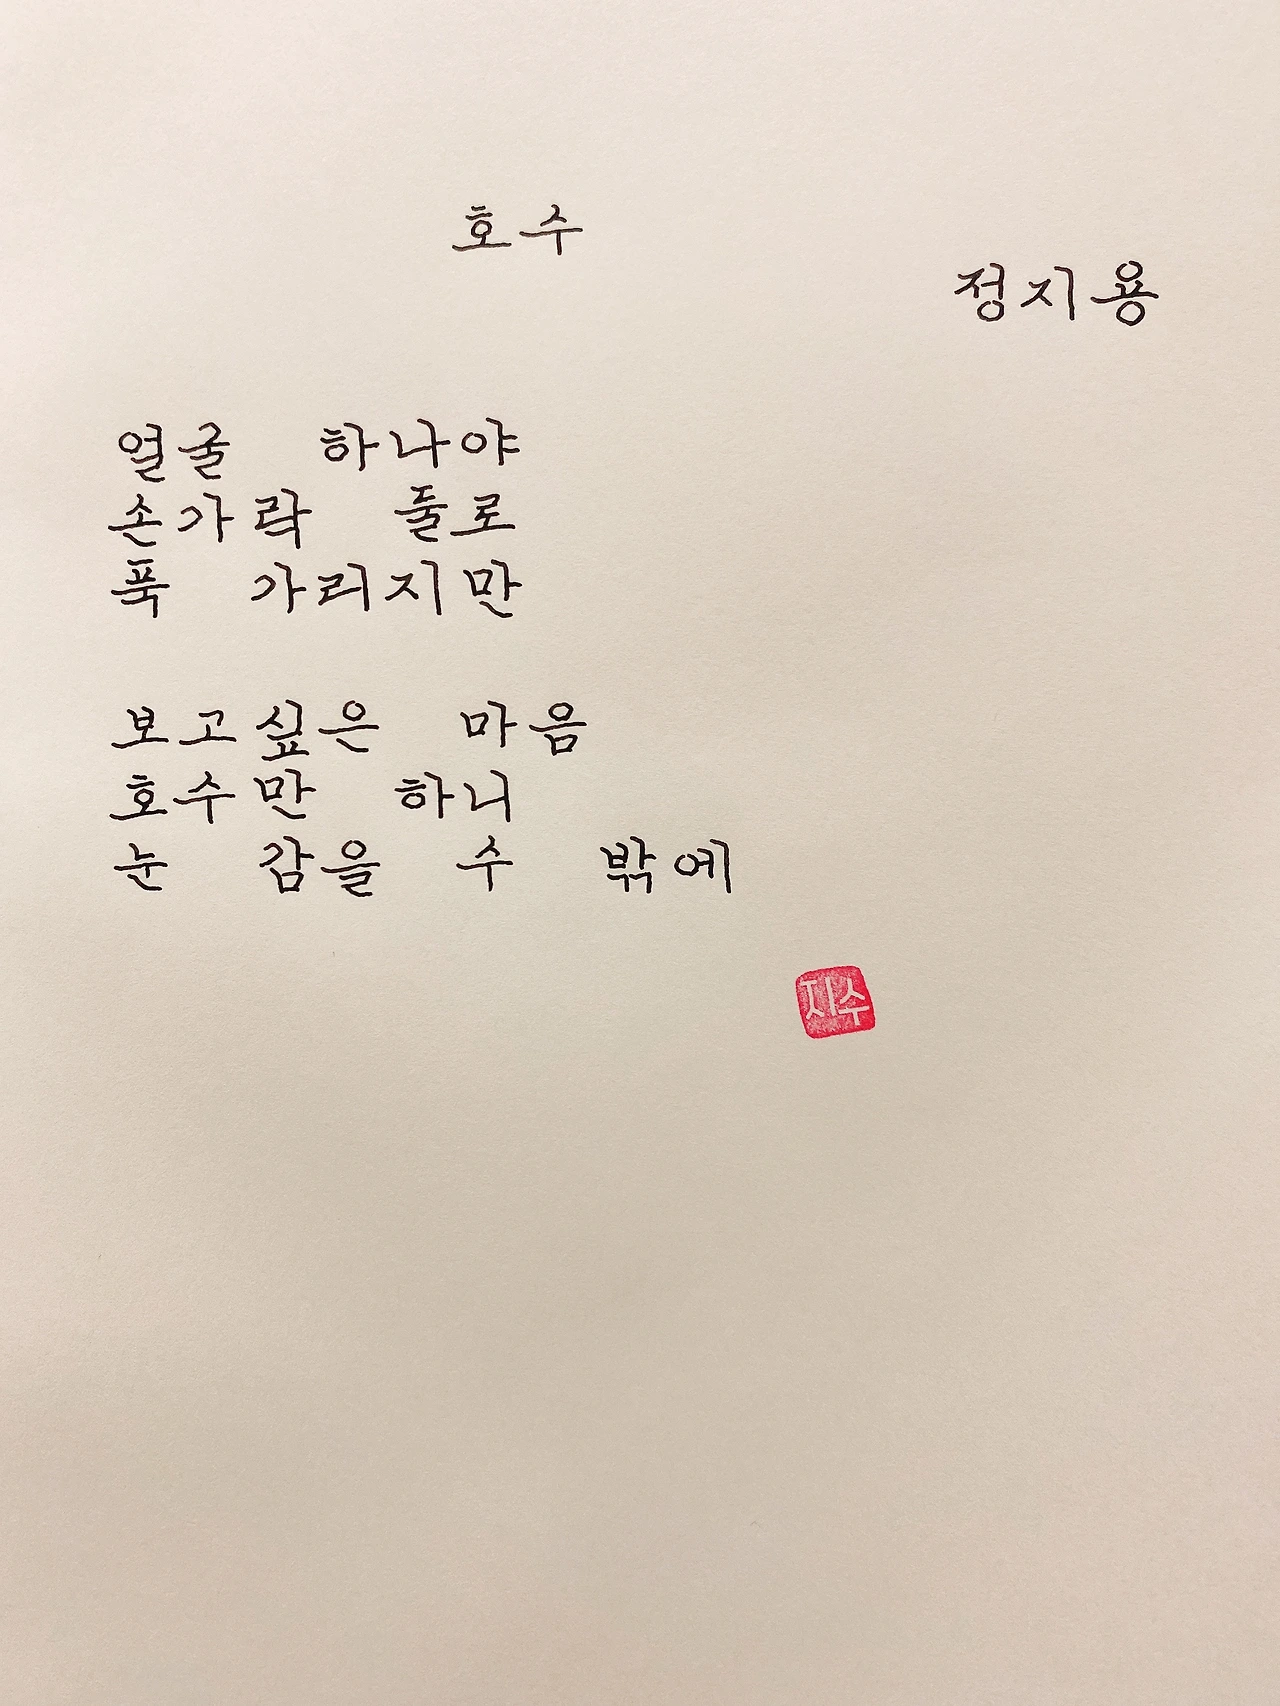 호수
정지용
얼굴 하나야
손가락 둘로
푹 가리지만
보고싶은 마음
호수만 하니
눈 감을 수 밖에
지수